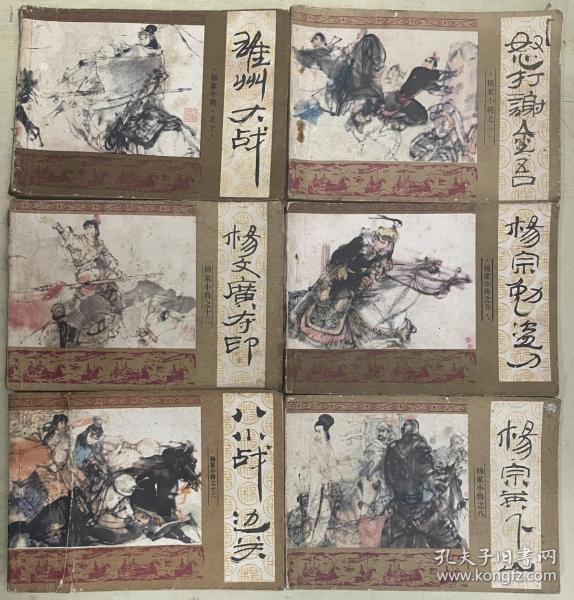 雄州大战
·杨家小将之十·
怒打謝金吾
·杨家小将之一·
楊文廣夺印
杨家小将之十二
楊宗勉盗刀
·杨家小将之五·
八小战边关
杨家小将之十三
楊宗英下山
杨家小将之八
孔夫子旧书网
www.kongfz.com